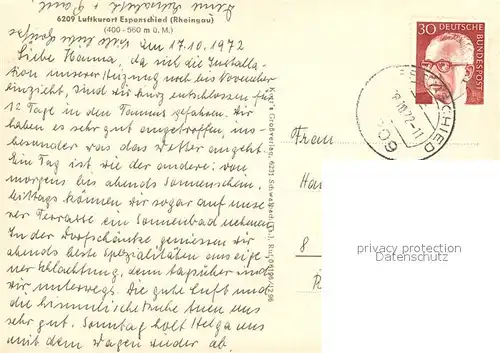 6209 Luftkurort Espenschied (Rheingau)
(400 - 560 m ü. M.)
den 17.10.1972
Liebe Hanna, da sich die Installa-
tion unserer Heizung weit bis November
einzieht, sind wir kurz entschlossen für
12 Tage in den Taunus gefahren. Wir
haben es sehr gut angetroffen, ins-
besonder was das Wetter angeht.
Ein Tag ist wie der andere: von
morgens bis abends Sonnenschein.
Mittags können wir sogar auf unse-
rer Terrasse ein Sonnenbad nehmen.
In der Dorfschänke genießen wir
abends beste Spezialitäten aus eige-
ner Schlachtung, denn tagsüber sind
wir unterwegs. Die gute Luft und
die himmlische Ruhe tuen uns
sehr gut. Sonntag holt Helga uns
mit dem Wagen wieder ab.
30 DEUTSCHE
BUNDESPOST
ESPENSCHIED
18.10.72-11
6209
Frau
Ha
8
privacy protection
Datenschutz